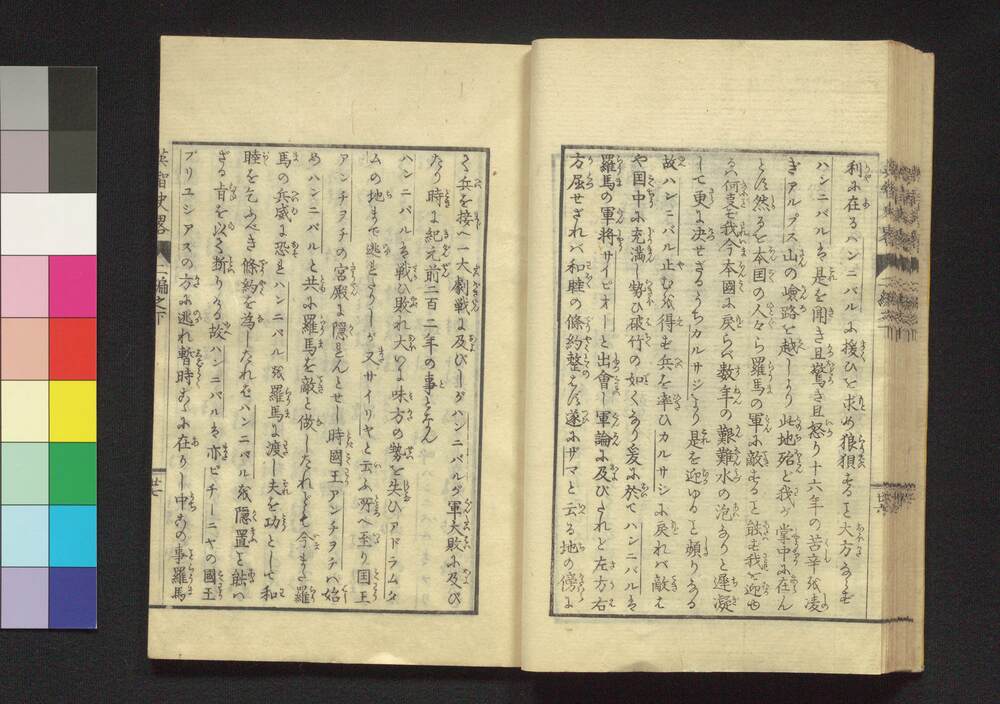 利に在るハンニバルに援ひを求め狼狽すること大方ならず
ハンニバルは是を聞き且驚き且怒り十六年の苦辛を凌
ぎアルプス山の嶮路を越しより此地殆ど我が掌中に在ん
とす然るを本国の人々ら羅馬の軍に敵すること能はず我を迎ゆ
る何事ぞ我今本國に戻らバ数年の艱難水の泡なりと遅凝
して更に決せざるうちカルサジより是を迎ゆること頻りなる
故ハンニバル止むを得ず兵を率ひカルサシに戻れバ敵は
や国中に充満し勢ひ破竹の如くなり爰に於てハンニバルは
羅馬の軍将サイピオーと出會し軍論に及びけれど左右
方屈せざれバ和睦の條約整はず遂にザマと云る地の傍に
て兵を接へ一大劇戦に及びしがハンニバルガ軍大敗に及び
たり時に紀元前二百二年の事となん
ハンニバルは戦ひ敗れ大いに味方の勢を失ひアドラムタ
ムの地まで逃れたりしが又サイリヤと云ふ所へ至り国王
アンチヲチの宮殿に隠れんとせし時國王アンチヲチハ始
めハンニバルと共に羅馬を敵と做したれども今また羅
馬の兵威に恐れハンニバルを羅馬に渡し夫を功として和
睦を乞ふべき條約を為したれバハンニバルを隠置こと能ハ
ざる旨を以て断りける故ハンニバルは亦ビチーニヤの國王
プリユシアスの方に逃れ暫時こゝに在りし中この事羅馬
英智史畧 二編之下 廿七